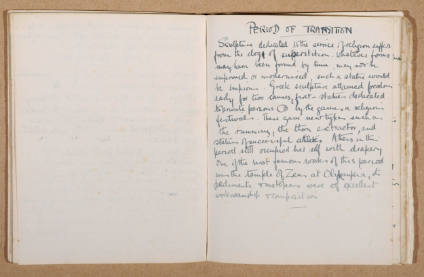 PERIOD OF TRANSITION
Sculpture dedicated to the service of religion suffers
from the clogs of superstition. Whatever forms
may have been found by time may not be
improved or modernised, such a statue would
be impious. Greek sculpture attained freedom
early for two causes, first statues dedicated
to private persons by the games, a religious
festival. These gave new types such as
the running, the thorn extractor, and
statues of successful athletes. Athens in this
period still occupied her self with drapery
One of the most famous works of this period
was the temple of Zeus at Olympia, its
pediments & metopes were of excellent
workmanship & composition